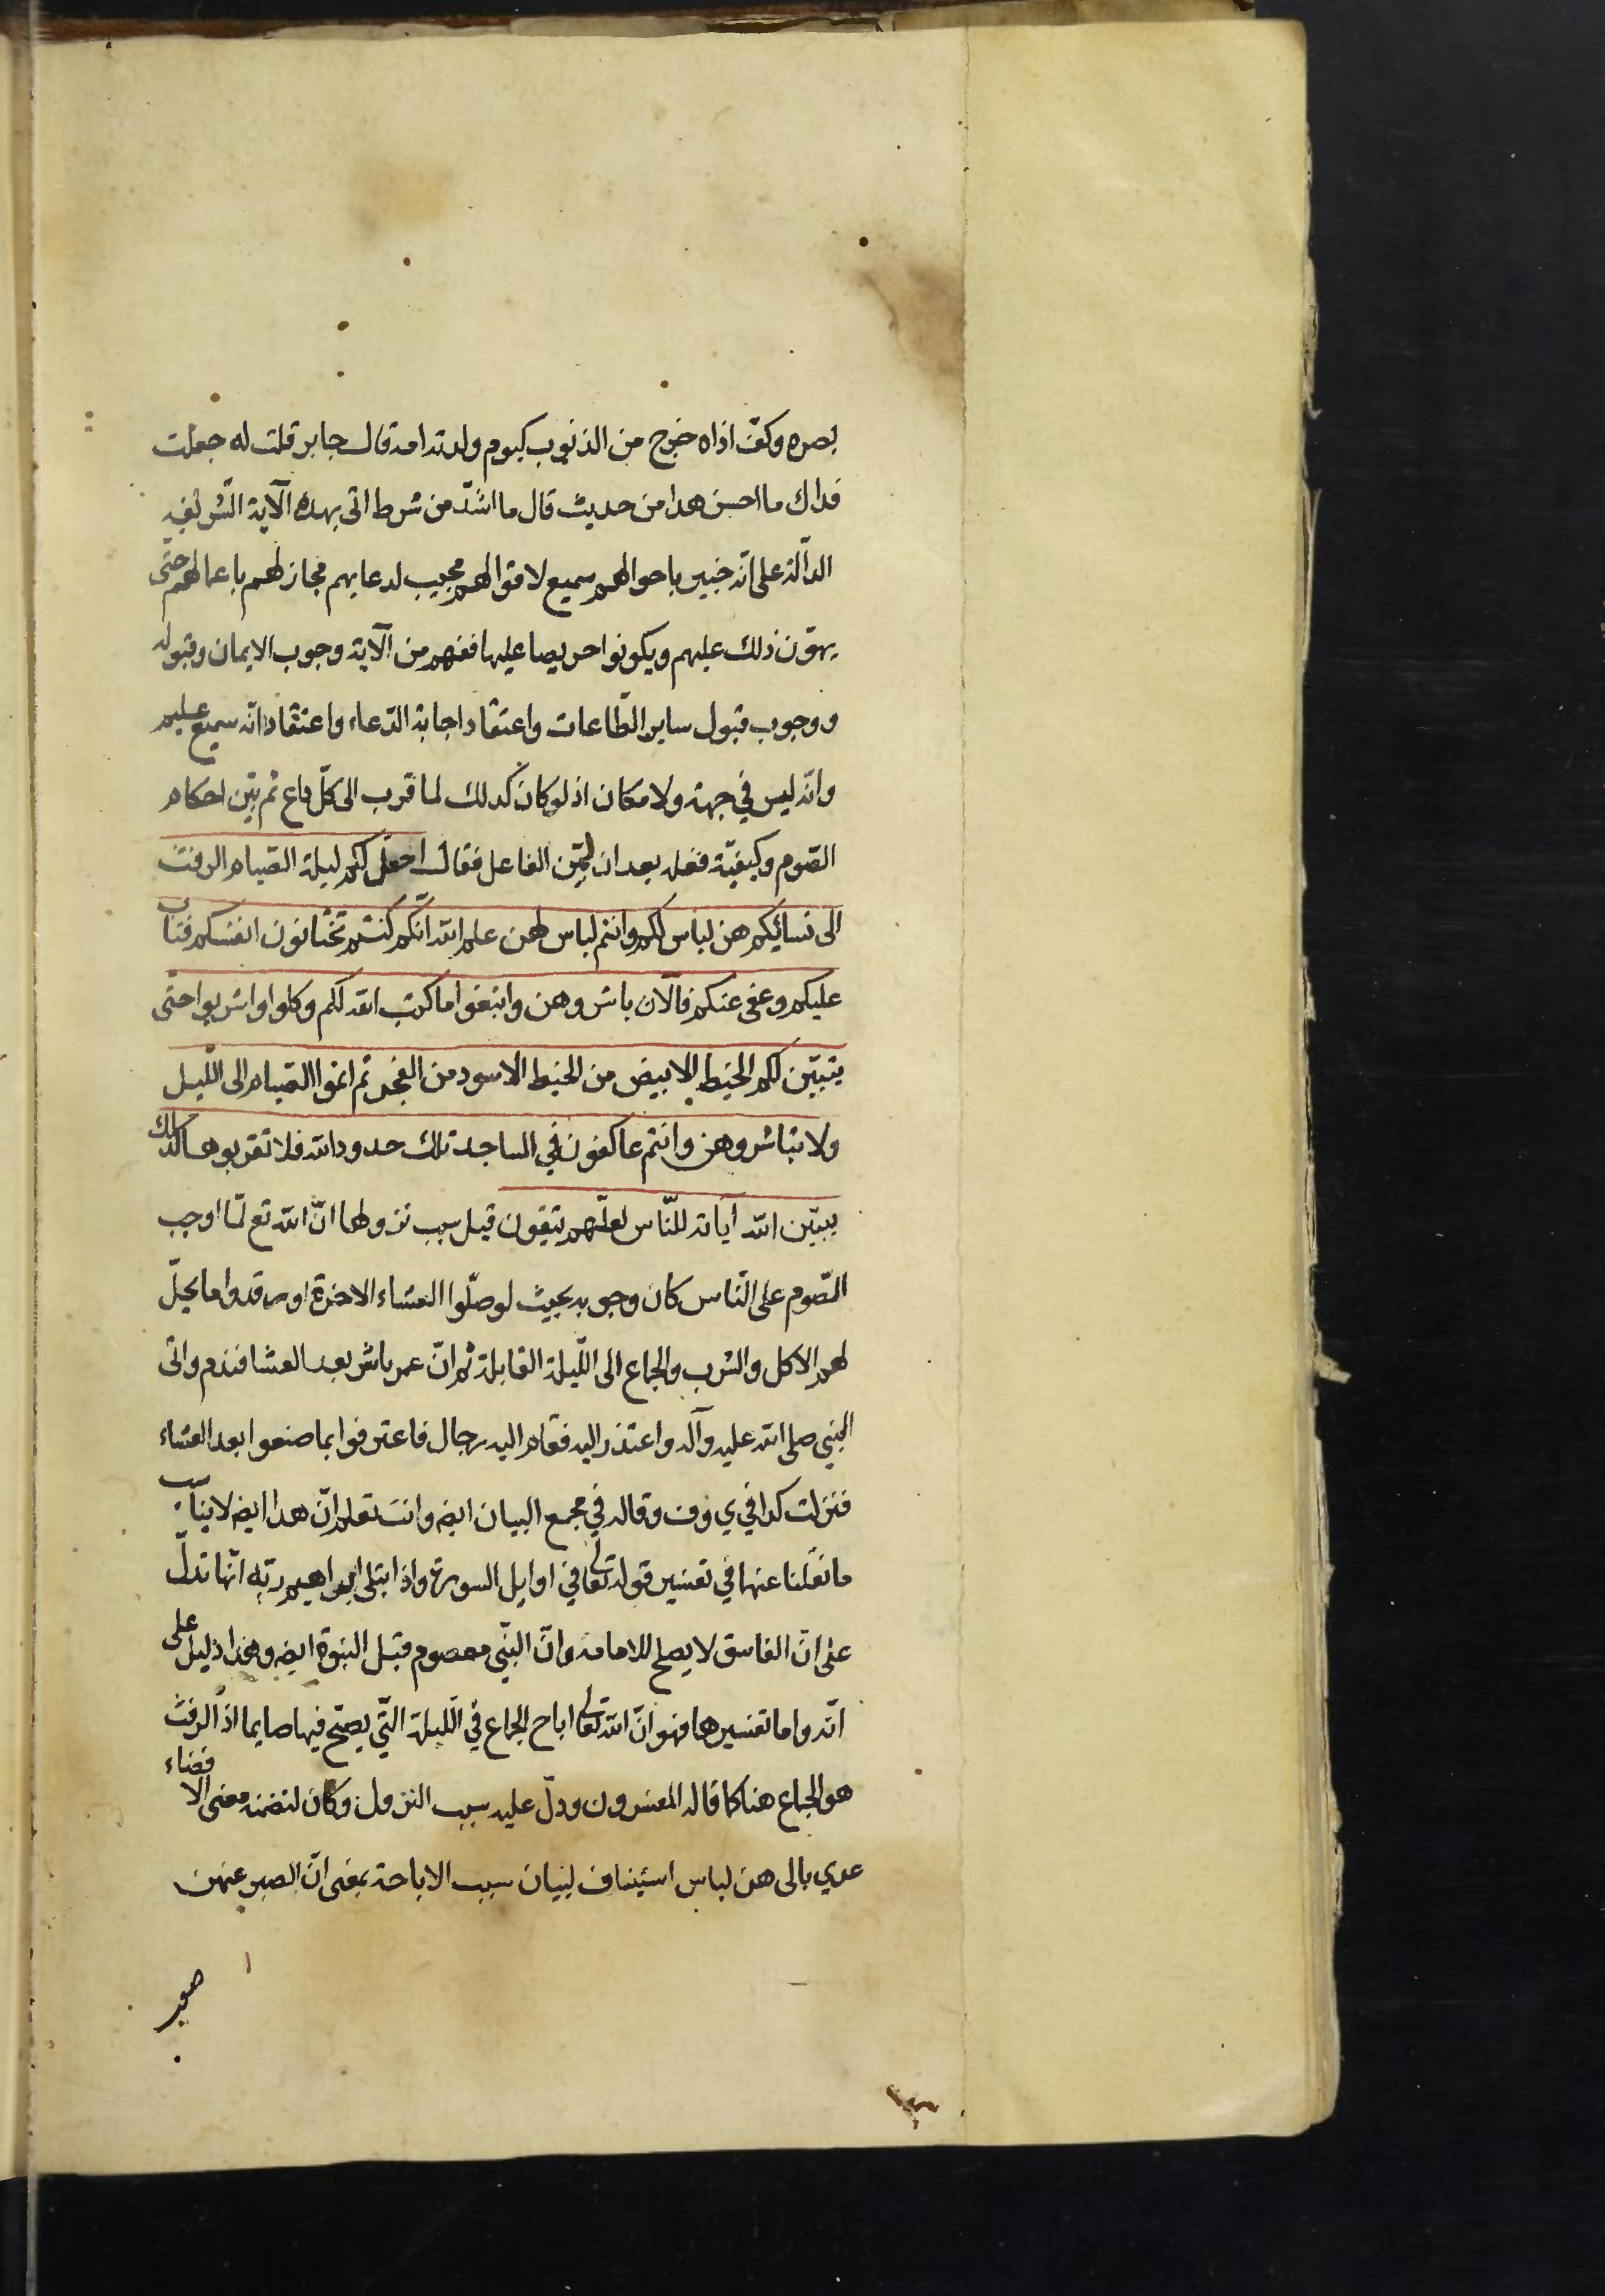 بصره وكفّ اذاه خرج من الذنوب كيوم ولدته امه قال جابر قلت له جعلت
فداك ما احسن هذا من حديث قال ما اشدّ من شرط اتى بهذه الآية الشريفة
الدآلة على انّه خبير باحوالهم سميع لاقوالهم مجيب لدعايهم مجاز لهم باعمالهم حتى
يهوّن ذلك عليهم ويكونوا حريصا عليها ففهم من الآية وجوب الايمان وقبوله
ووجوب قبول ساير الطّاعات واعتقاد اجابة الدّعاء واعتقاد انّه سميع عليم
وانّه ليس في جهة ولا مكان اذ لو كان كذلك لما قرب الى كلّ داع ثم بيّن احكام
الصّوم وكيفيّة فعله بعد ان بيّن الفاعل فقال احلّ لكم ليلة الصّيام الرفث
الى نسائكم هن لباس لكم وانتم لباس لهن علم الله انّكم كنتم تختانون انفسكم فتاب
عليكم وعفى عنكم فالآن باشروهن وابتغوا ما كتب الله لكم وكلوا واشربوا حتى
يتبيّن لكم الخيط الابيض من الخيط الاسود من الفجر ثم اتموا الصّيام الى اللّيل
ولا تباشروهن وانتم عاكفون في المساجد تلك حدود الله فلا تقربوها كذلك
يبيّن الله آياته للنّاس لعلّهم يتقون قيل سبب نزولها انّ الله تع لمّا اوجب
الصّوم على النّاس كان وجوبه بحيث لو صلّوا العشاء الاخرة او رقدوا ما يحلّ
لهم الاكل والشرب والجماع الى اللّيلة القابلة ثم انّ عمر باشر بعد العشا فندم واتى
النبي صلى الله عليه وآله واعتذر اليه فقام اليه رجال فاعترفوا بما صنعوا بعد العشاء
فنزلت كذا في ي وف وقاله في مجمع البيان ايضه وانت تعلم انّ هذا ايضه لا يناسب
ما نقلنا عنها في تفسير قوله تعالى في اوايل السورة واذ ابتلى ابراهيم ربّه انّها تدلّ
على انّ الفاسق لا يصلح للامامة وانّ النبّي معصوم قبل النبوة ايضه وهذا دليل على
انّه واما تفسيرها فهو انّ الله تعالى اباح الجماع في اللّيلة الّتي يصبح فيها صايما اذ الرفث
هو الجماع هنا كما قاله المفسرون ودلّ عليه سبب النزول وكان لتضمنه معنى الافضاء
عدي بالى هن لباس استيناف لبيان سبب الاباحة بمعنى انّ الصبر عنهن
صعب